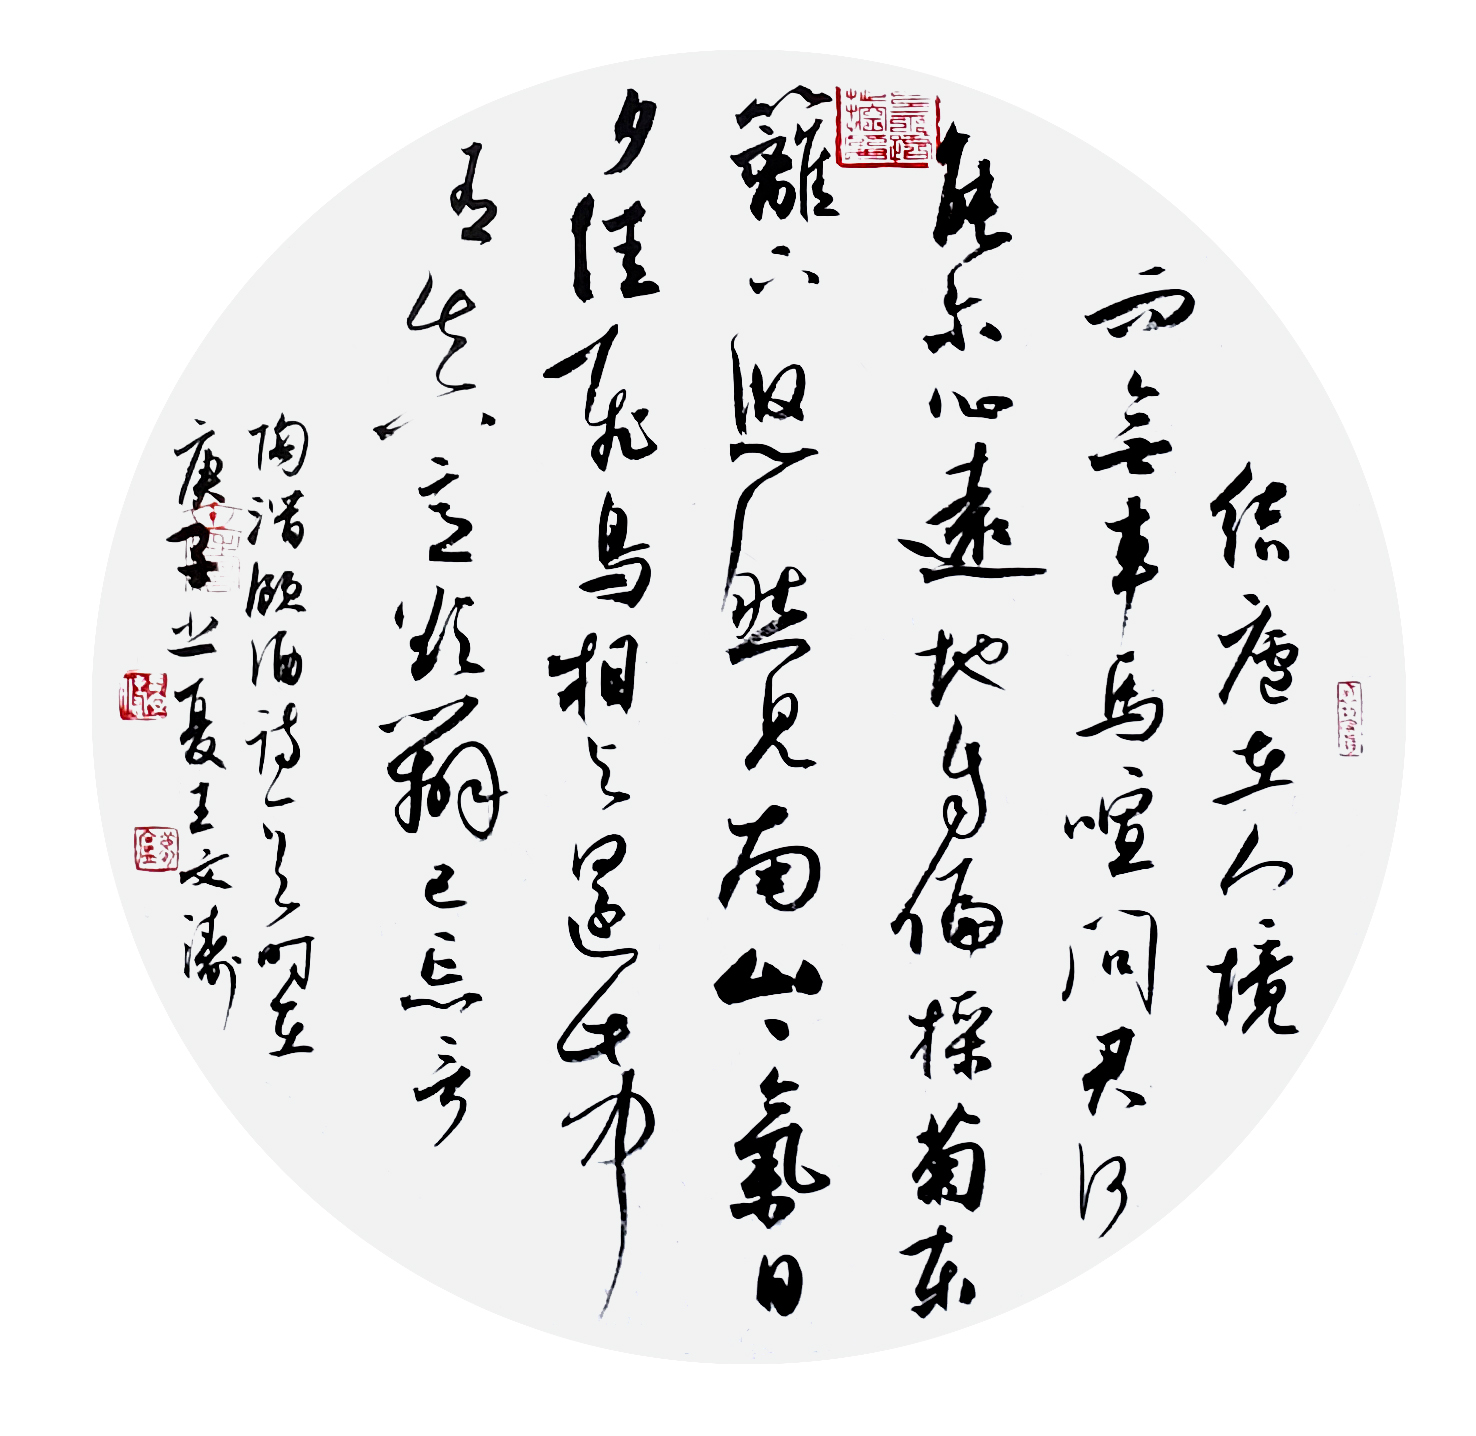 結廬在人境
而無車馬喧問君何
能尔心遠地自偏採菊東
籬下悠然見南山〻氣日
夕佳飛鳥相与還此中
有真意欲辯已忘言
陶潛飲酒詩一首時在
庚子之夏王文濤